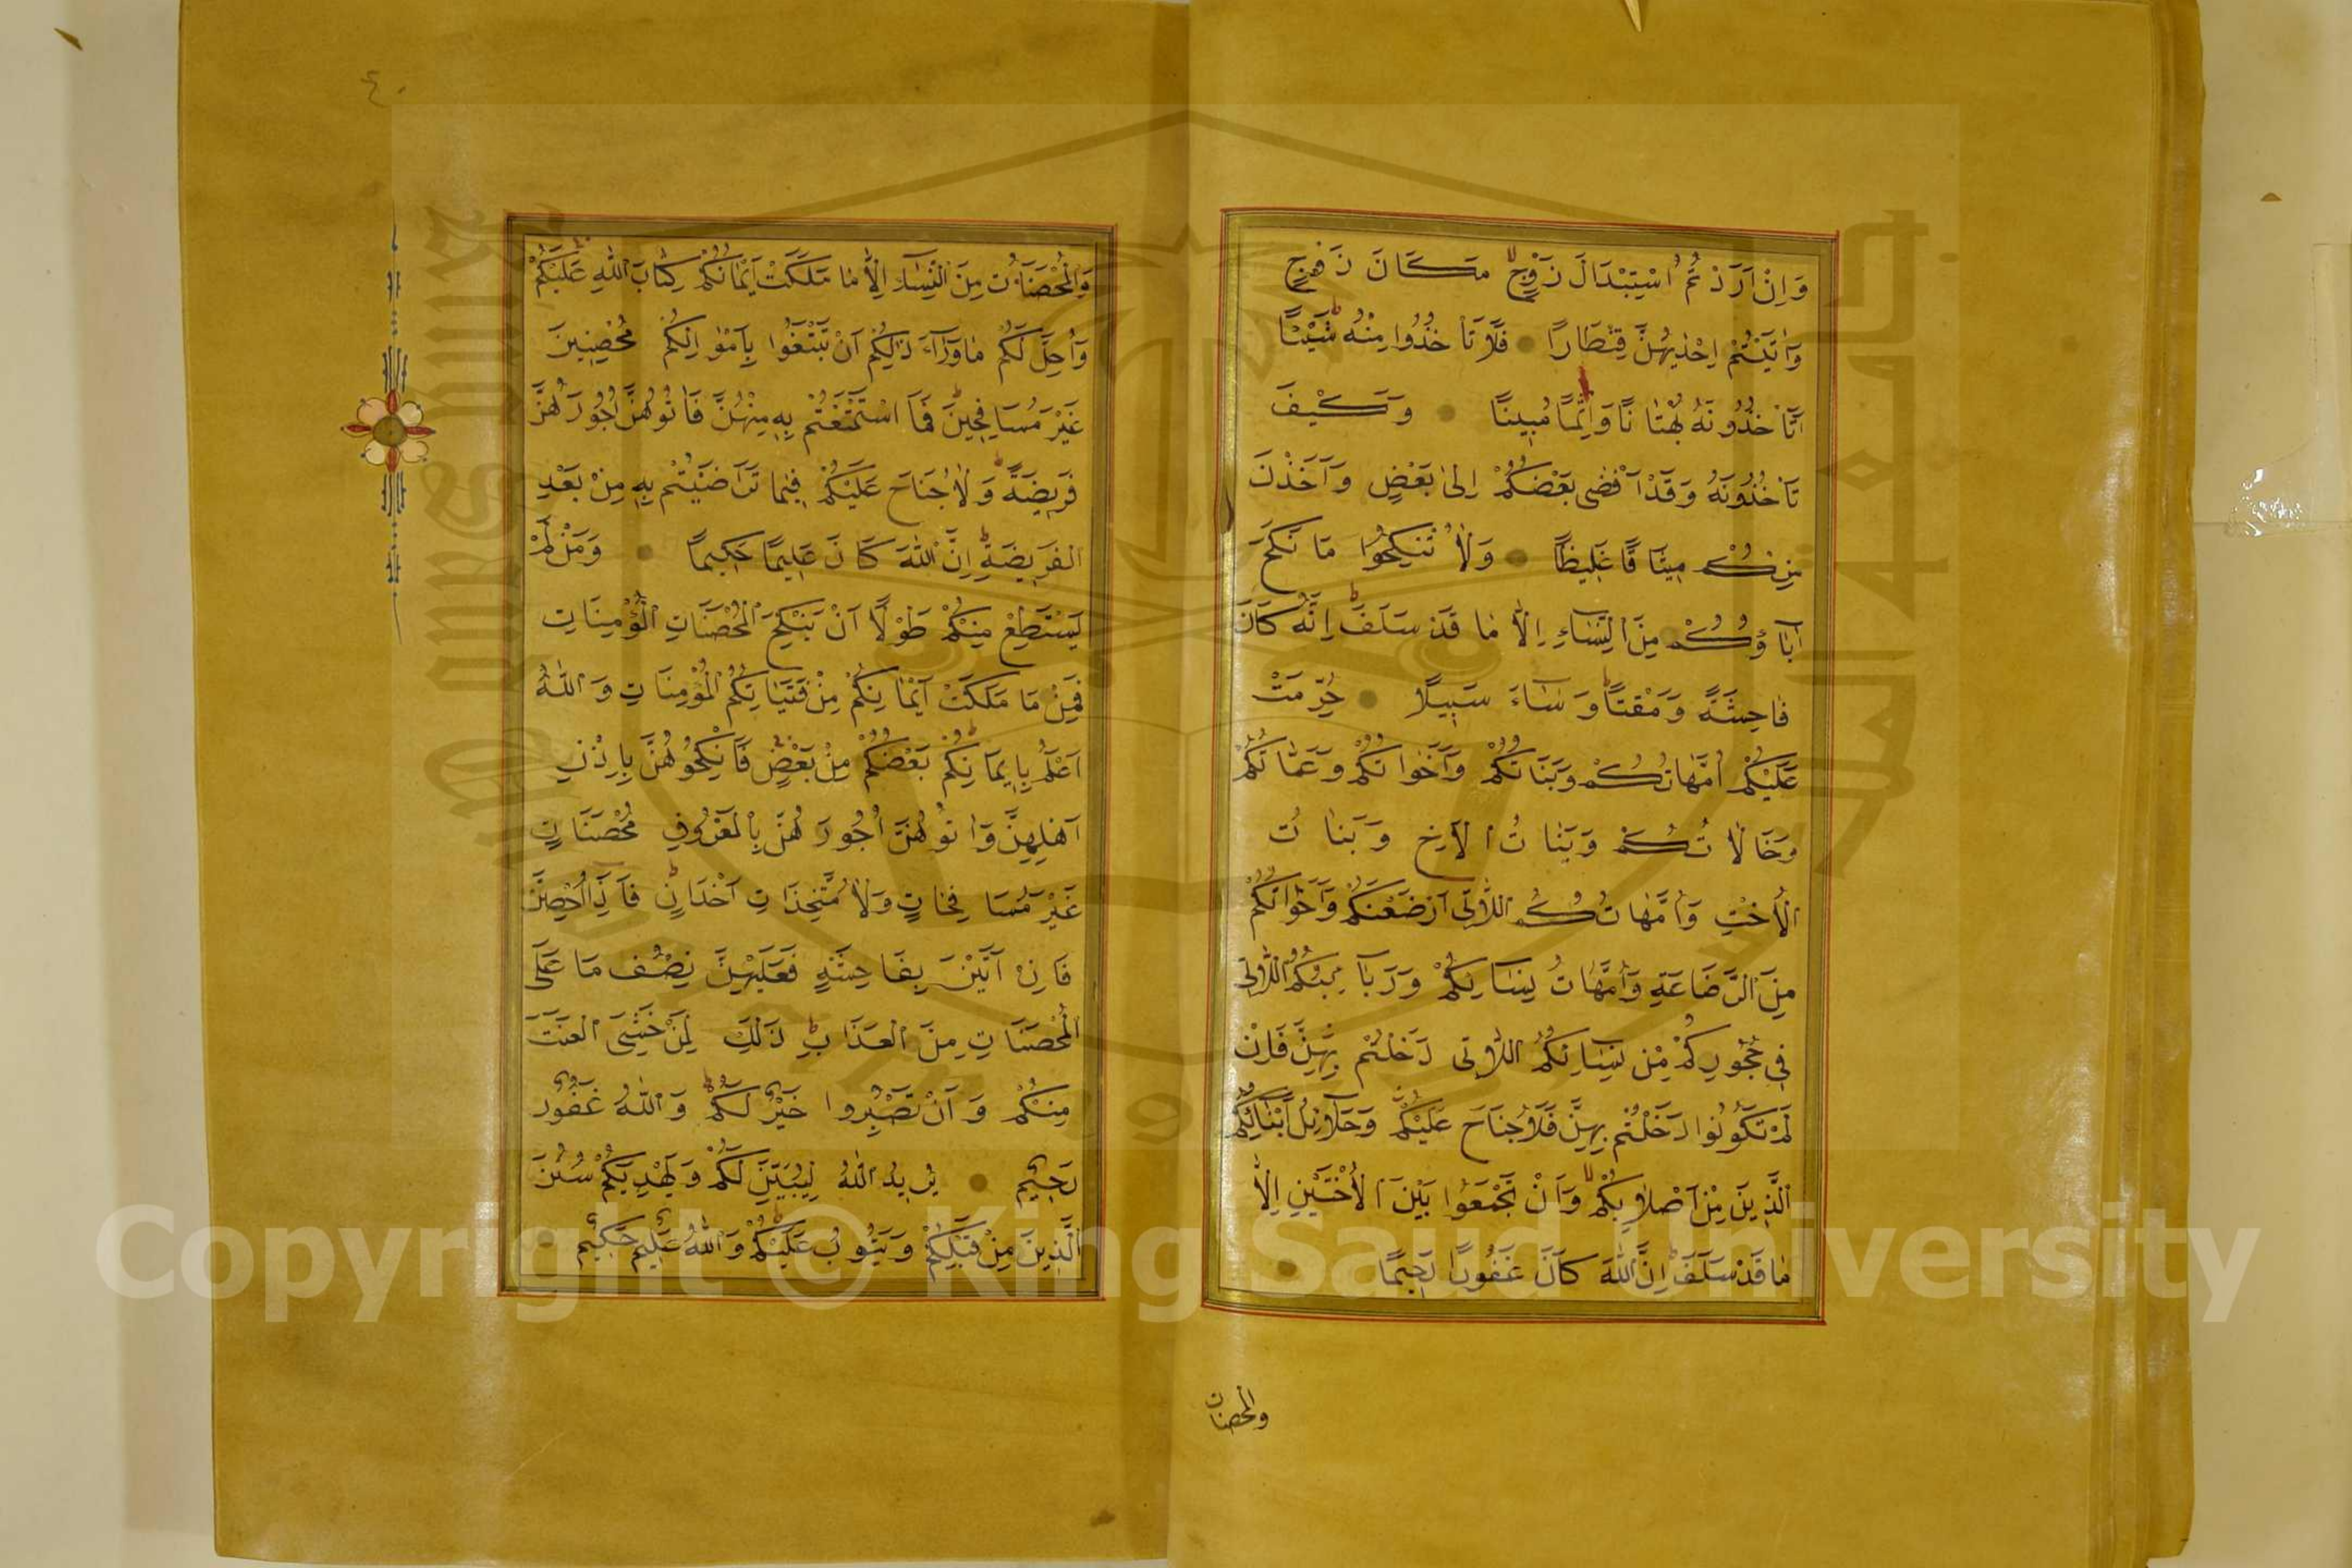 وَاِنْ اَرَدْتُمُ اسْتِبْدَالَ زَوْجٍ مَكَانَ زَوْجٍ
وَاٰتَيْتُمْ اِحْدٰيهُنَّ قِنْطَارًا فَلَا تَأْخُذُوا مِنْهُ شَيْئًا
اَتَأْخُذُونَهُ بُهْتَانًا وَاِثْمًا مُبِينًا وَكَيْفَ
تَأْخُذُونَهُ وَقَدْ اَفْضٰى بَعْضُكُمْ اِلٰى بَعْضٍ وَاَخَذْنَ
مِنْكُمْ مِيثَاقًا غَلِيظًا وَلَا تَنْكِحُوا مَا نَكَحَ
اٰبَاؤُكُمْ مِنَ النِّسَاءِ اِلَّا مَا قَدْ سَلَفَ اِنَّهُ كَانَ
فَاحِشَةً وَمَقْتًا وَسَاءَ سَبِيلًا حُرِّمَتْ
عَلَيْكُمْ اُمَّهَاتُكُمْ وَبَنَاتُكُمْ وَاَخَوَاتُكُمْ وَعَمَّاتُكُمْ
وَخَالَاتُكُمْ وَبَنَاتُ الْاَخِ وَبَنَاتُ
الْاُخْتِ وَاُمَّهَاتُكُمُ اللَّاتِى اَرْضَعْنَكُمْ وَاَخَوَاتُكُمْ
مِنَ الرَّضَاعَةِ وَاُمَّهَاتُ نِسَائِكُمْ وَرَبَائِبُكُمُ اللَّاتِى
فِى حُجُورِكُمْ مِنْ نِسَائِكُمُ اللَّاتِى دَخَلْتُمْ بِهِنَّ فَاِنْ
لَمْ تَكُونُوا دَخَلْتُمْ بِهِنَّ فَلَا جُنَاحَ عَلَيْكُمْ وَحَلَائِلُ اَبْنَائِكُمُ
الَّذِينَ مِنْ اَصْلَابِكُمْ وَاَنْ تَجْمَعُوا بَيْنَ الْاُخْتَيْنِ اِلَّا
مَا قَدْ سَلَفَ اِنَّ اللّٰهَ كَانَ غَفُورًا رَحِيمًا
والمحصنات
٤٠
وَالْمُحْصَنَاتُ مِنَ النِّسَاءِ اِلَّا مَا مَلَكَتْ اَيْمَانُكُمْ كِتَابَ اللّٰهِ عَلَيْكُمْ
وَاُحِلَّ لَكُمْ مَا وَرَاءَ ذٰلِكُمْ اَنْ تَبْتَغُوا بِاَمْوَالِكُمْ مُحْصِنِينَ
غَيْرَ مُسَافِحِينَ فَمَا اسْتَمْتَعْتُمْ بِهِ مِنْهُنَّ فَاٰتُوهُنَّ اُجُورَهُنَّ
فَرِيضَةً وَلَا جُنَاحَ عَلَيْكُمْ فِيمَا تَرَاضَيْتُمْ بِهِ مِنْ بَعْدِ
الْفَرِيضَةِ اِنَّ اللّٰهَ كَانَ عَلِيمًا حَكِيمًا وَمَنْ لَمْ
يَسْتَطِعْ مِنْكُمْ طَوْلًا اَنْ يَنْكِحَ الْمُحْصَنَاتِ الْمُؤْمِنَاتِ
فَمِنْ مَا مَلَكَتْ اَيْمَانُكُمْ مِنْ فَتَيَاتِكُمُ الْمُؤْمِنَاتِ وَاللّٰهُ
اَعْلَمُ بِاِيمَانِكُمْ بَعْضُكُمْ مِنْ بَعْضٍ فَانْكِحُوهُنَّ بِاِذْنِ
اَهْلِهِنَّ وَاٰتُوهُنَّ اُجُورَهُنَّ بِالْمَعْرُوفِ مُحْصَنَاتٍ
غَيْرَ مُسَافِحَاتٍ وَلَا مُتَّخِذَاتِ اَخْدَانٍ فَاِذَا اُحْصِنَّ
فَاِنْ اَتَيْنَ بِفَاحِشَةٍ فَعَلَيْهِنَّ نِصْفُ مَا عَلَى
الْمُحْصَنَاتِ مِنَ الْعَذَابِ ذٰلِكَ لِمَنْ خَشِىَ الْعَنَتَ
مِنْكُمْ وَاَنْ تَصْبِرُوا خَيْرٌ لَكُمْ وَاللّٰهُ غَفُورٌ
رَحِيمٌ يُرِيدُ اللّٰهُ لِيُبَيِّنَ لَكُمْ وَيَهْدِيَكُمْ سُنَنَ
الَّذِينَ مِنْ قَبْلِكُمْ وَيَتُوبَ عَلَيْكُمْ وَاللّٰهُ عَلِيمٌ حَكِيمٌ
Copyright © King Saud University